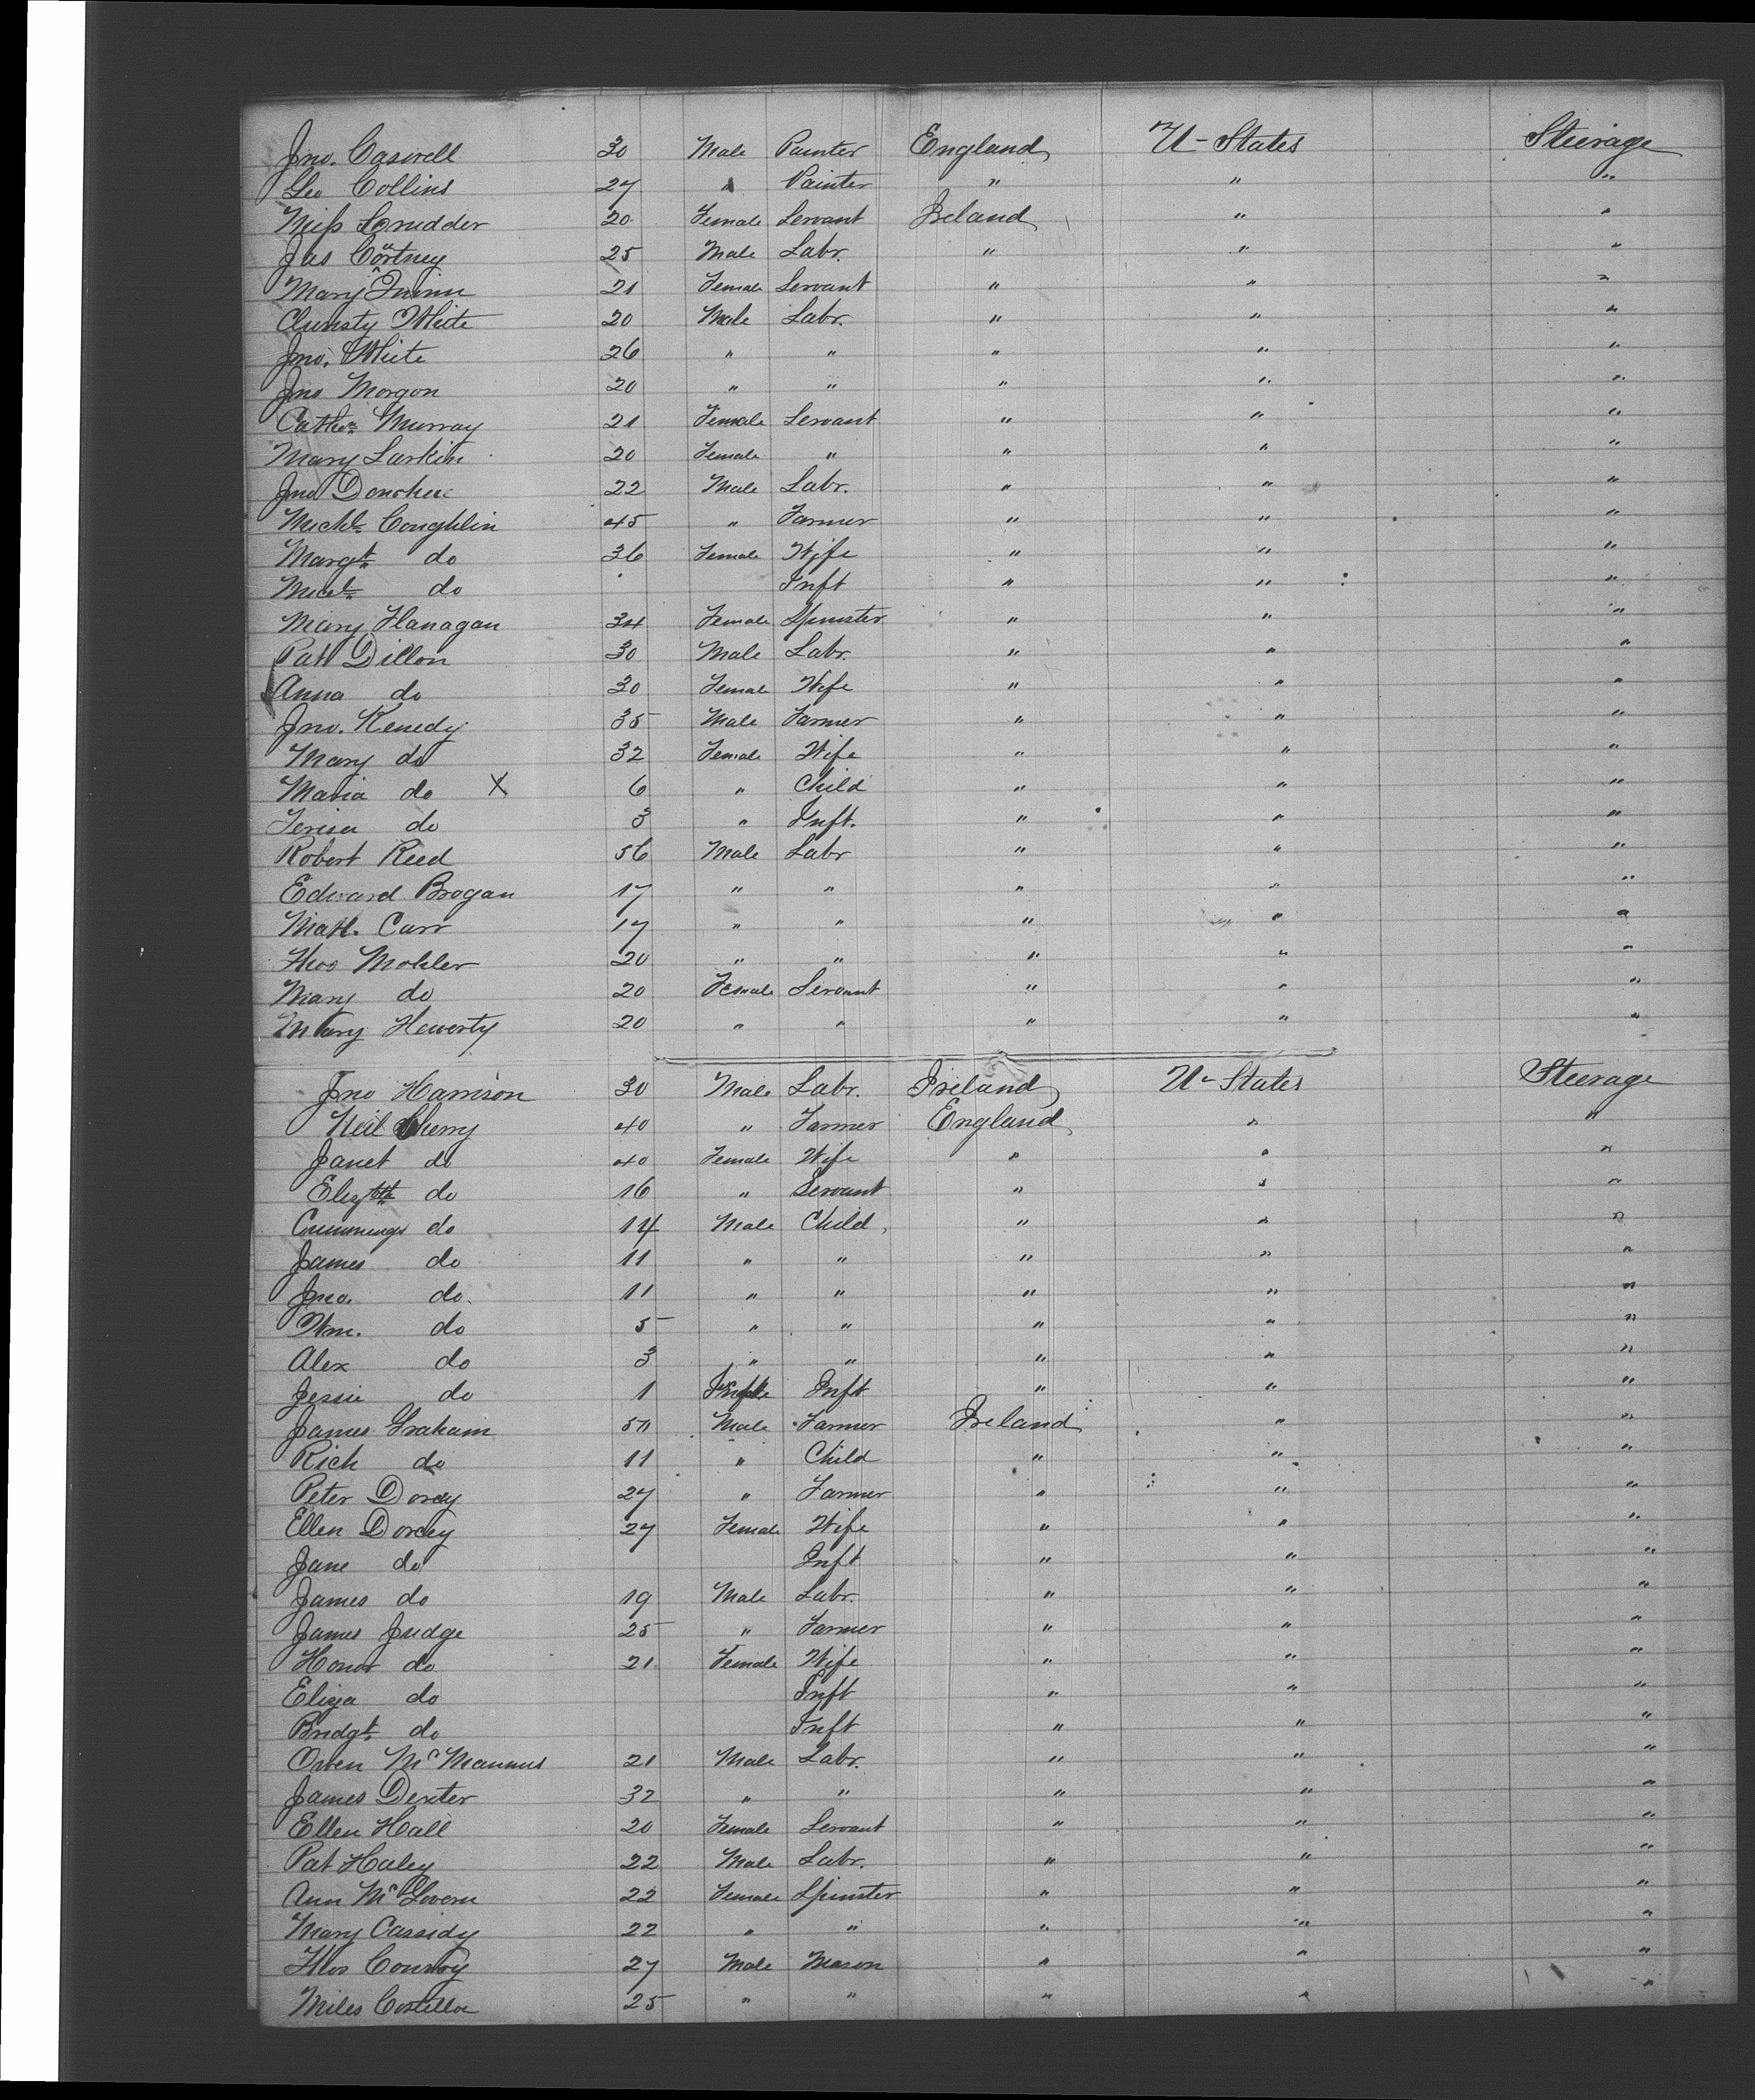 Jno. Caswell 30 Male Painter England U-States Steerage
Geo Collins 27 " Painter " " "
Miss Scrudder 20 Female Servant Ireland " "
Jas Courtney 25 Male Labr. " " "
Mary Quinn 21 Female Servant " " "
White 20 Male Labr. " " "
Jno. White 26 " " " " "
Jno Morgan 20 " " " " "
Cathn Murray 21 Female Servant " " "
Mary Larkin 20 Female " " " "
Jno Donohue 22 Male Labr. " " "
Michl Coughlin 45 " Farmer " " "
Margt do 36 Female Wife " " "
Michl do Inft " " "
Mary Flanagan 34 Female Spinster " " "
Patt Dillon 30 Male Labr. " " "
Anna do 30 Female Wife " " "
Jno. Kenedy 35 Male Farmer " " "
Mary do 32 Female Wife " " "
Maria do X 6 " Child " " "
Teresa do 3 " Inft. " " "
Robert Reed 56 Male Labr " " "
Edward Brogan 17 " " " " "
Matt. Carr 17 " " " " "
Thos Mohler 20 " " " " "
Mary do 20 Female Servant " " "
Mary Heverty 20 " " " " "
Jno Harrison 30 Male Labr. Ireland U-States Steerage
Neil Cherry 40 " Farmer England " "
Janet do 40 Female Wife " " "
Elizbth do 16 " Servant " " "
Cummings do 14 Male Child " " "
James do 11 " " " " "
Jno. do. 11 " " " " "
Wm. do 5 " " " " "
Alex do 3 " " " " "
Jessie do 1 Inft " " "
James Graham 50 Male Farmer Ireland " "
Rich do 11 " Child " " "
Peter Dorcy 27 " Farmer " " "
Ellen Dorcey 27 Female Wife " " "
Jane do Inft " " "
James do 19 Male Labr. " " "
James Judge 25 " Farmer " " "
Honor do 21 Female Wife " " "
Eliza do Inft " " "
Bridgt. do Inft " " "
Owen McMannus 21 Male Labr. " " "
James Dexter 32 " " " " "
Ellen Hall 20 Female Servant " " "
Pat Haley 22 Male Labr. " " "
Ann McGovern 22 Female Spinster " " "
Mary Cassidy 22 " " " " "
Thos Conroy 27 Male Mason " " "
Miles Costelloe 25 " " " " "